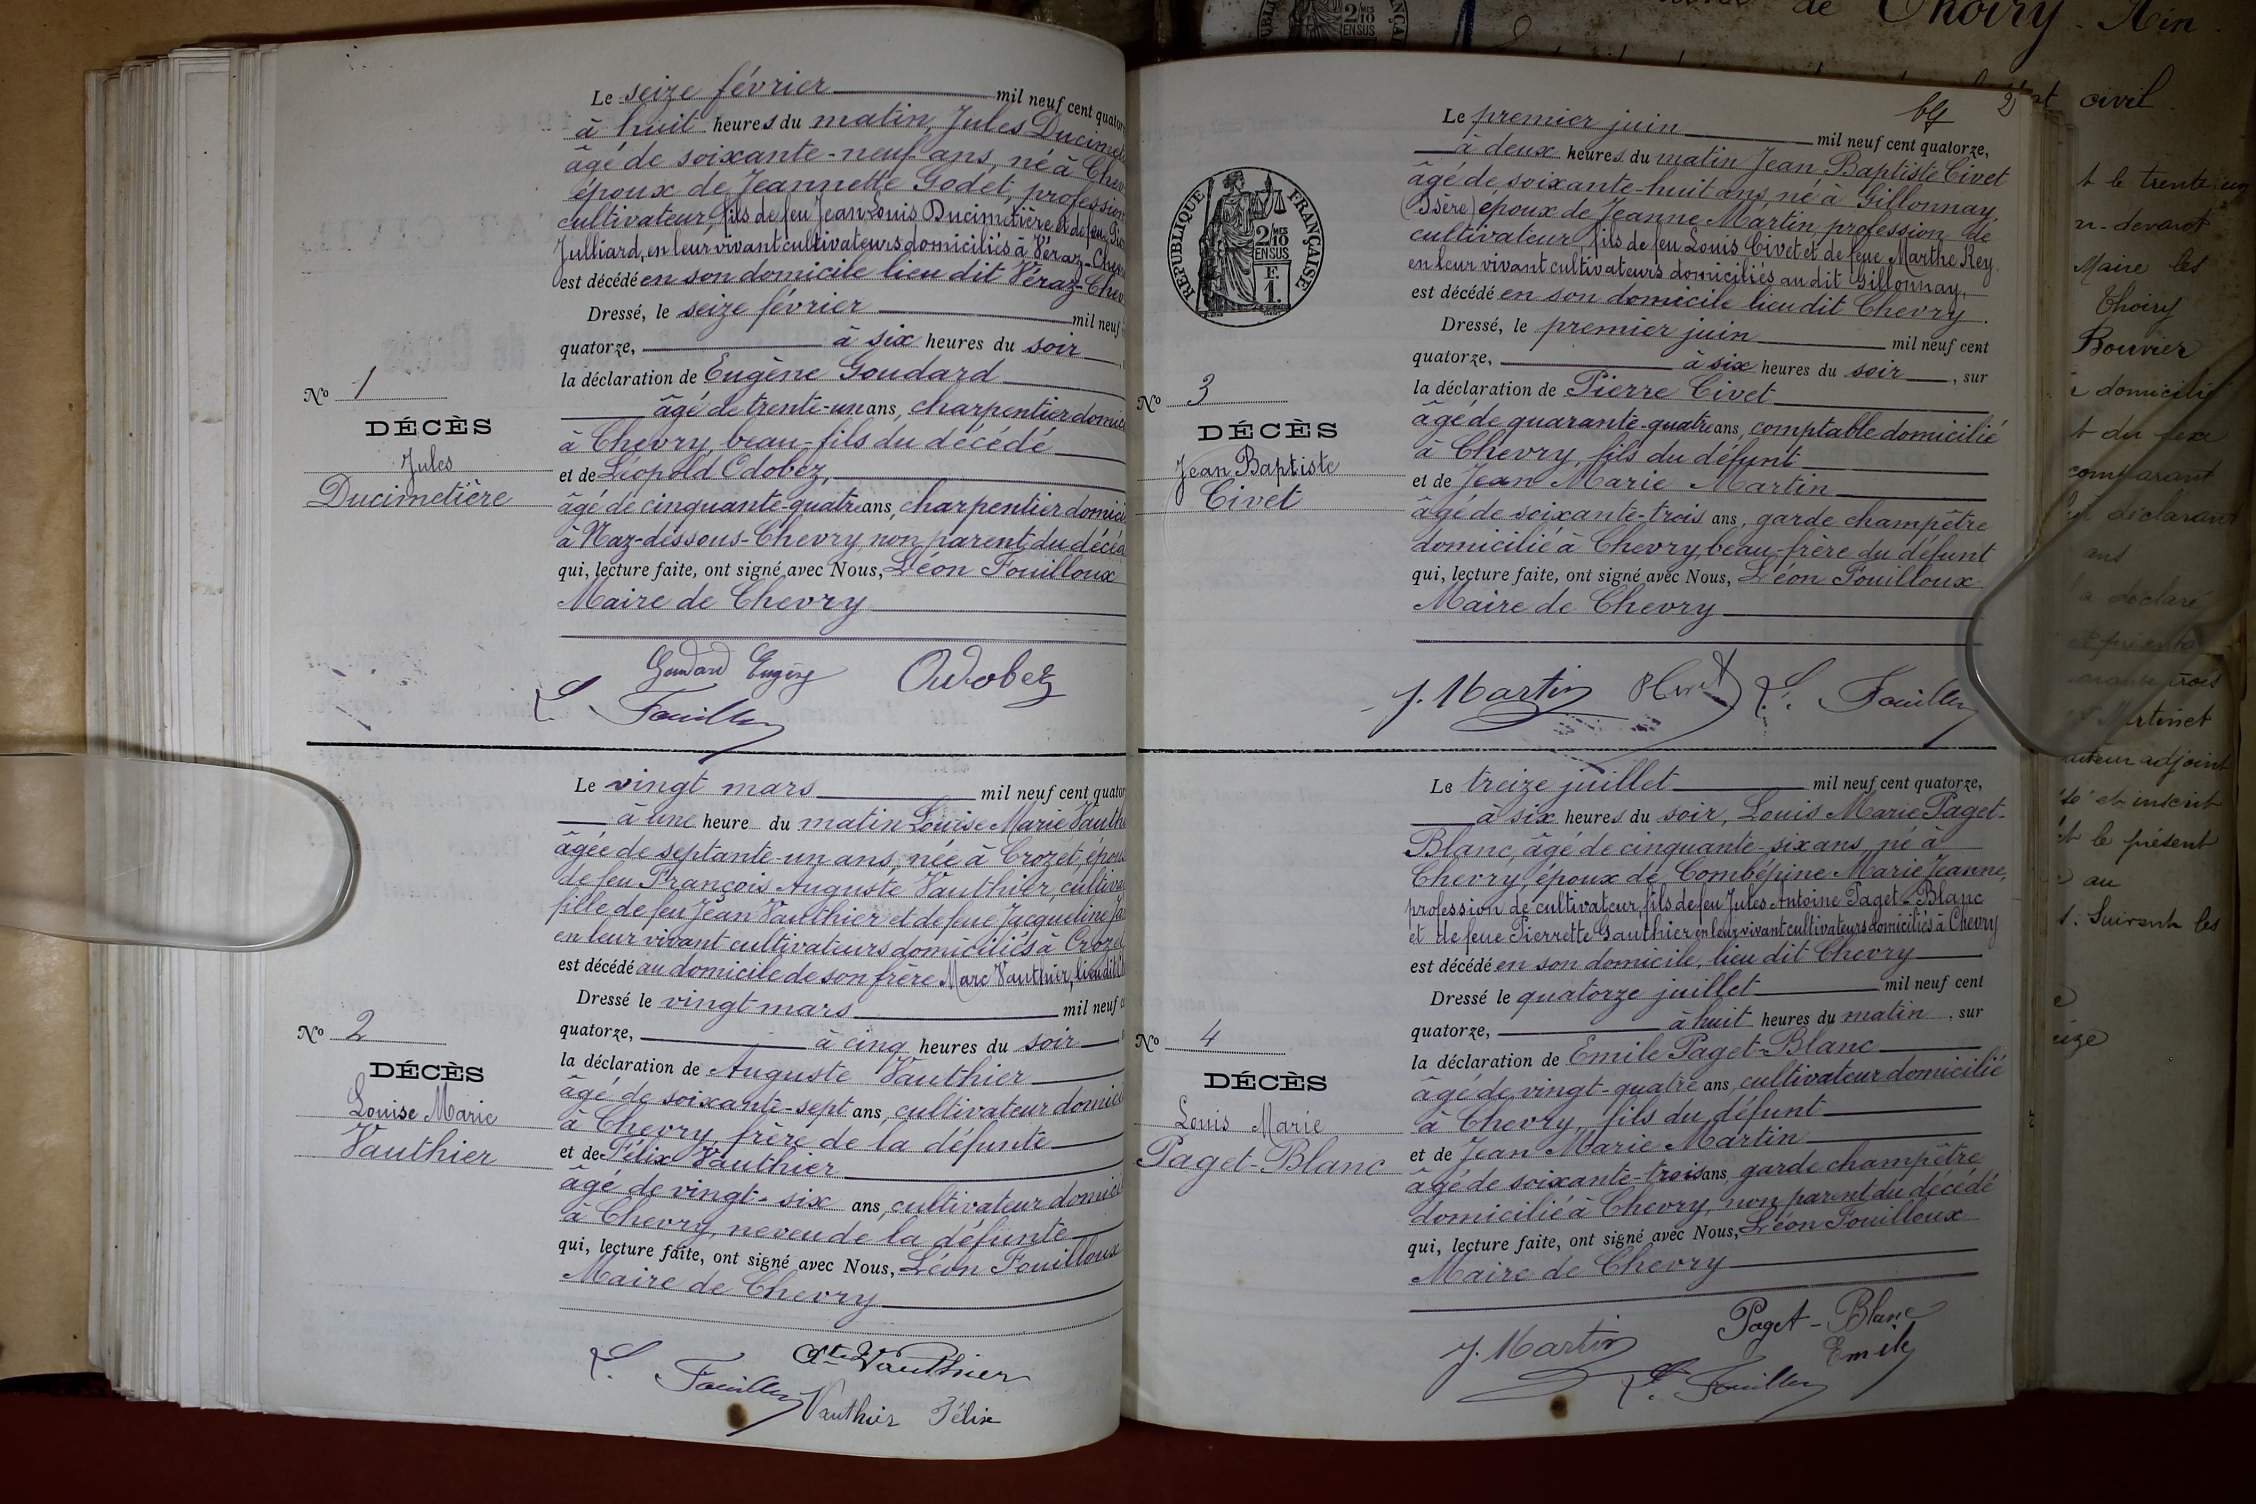 Le seize février mil neuf cent quator
à huit heures du matin, Jules Ducimet
âgé de soixante-neuf ans, né à Chev
époux de Jeannette Godet, profession
cultivateur, fils de feu Jean Louis Ducimetière et de feue
Julliard, en leur vivant cultivateurs domiciliés à Véraz-Chev
est décédé en son domicile lieu dit Véraz-Chev
Dressé, le seize février mil neuf
quatorze, à six heures du soir
la déclaration de Eugène Goudard
âgé de trente-un ans, charpentier domici
à Chevry, beau-fils du décédé
et de Léopold Odobez,
âgé de cinquante-quatre ans, charpentier domici
à Naz-dessous-Chevry, non parent du décéd
qui, lecture faite, ont signé avec Nous, Léon Fouilloux
Maire de Chevry
No 1
DÉCÈS
Jules
Ducimetière
Goudard Eugène Odobez
L. Fouilloux
Le vingt mars mil neuf cent quator
à une heure du matin Louise Marie Vauth
âgée de septante-un ans, née à Crozet, épous
de feu François Auguste Vauthier, cultiva
fille de feu Jean Vauthier et de feue Jacqueline
en leur vivant cultivateurs domiciliés à Crozet
est décédé au domicile de son frère Marc Vauthier, lieu dit
Dressé le vingt mars mil neuf c
quatorze, à cinq heures du soir
la déclaration de Auguste Vauthier
âgé de soixante-sept ans, cultivateur domici
à Chevry, frère de la défunte
et de Félix Vauthier
âgé de vingt-six ans, cultivateur domici
à Chevry, neveu de la défunte
qui, lecture faite, ont signé avec Nous, Léon Fouilloux
Maire de Chevry
No 2
DÉCÈS
Louise Marie
Vauthier
L. Fouilloux
Vauthier
Vauthier Félix
2
Le premier juin mil neuf cent quatorze,
à deux heures du matin Jean Baptiste Civet
âgé de soixante-huit ans, né à Gillonnay
(Isère) époux de Jeanne Martin, profession de
cultivateur, fils de feu Louis Civet et de feue Marthe Rey
en leur vivant cultivateurs domiciliés au dit Gillonnay,
est décédé en son domicile lieu dit Chevry
Dressé, le premier juin mil neuf cent
quatorze, à six heures du soir, sur
la déclaration de Pierre Civet
âgé de quarante-quatre ans, comptable domicilié
à Chevry, fils du défunt
et de Jean Marie Martin
âgé de soixante-trois ans, garde champêtre
domicilié à Chevry beau-frère du défunt
qui, lecture faite, ont signé avec Nous, Léon Fouilloux
Maire de Chevry
RÉPUBLIQUE FRANÇAISE
2/10 MES
EN SUS
F.
1.
No 3
DÉCÈS
Jean Baptiste
Civet
J. Martin P Civet L. Fouilloux
Le treize juillet mil neuf cent quatorze,
à six heures du soir, Louis Marie Paget-
Blanc, âgé de cinquante-six ans, né à
Chevry, époux de Combépine Marie Jeanne,
profession de cultivateur, fils de feu Jules Antoine Paget-Blanc
et de feue Pierrette Gauthier en leur vivant cultivateurs domiciliés à Chevry
est décédé en son domicile, lieu dit Chevry
Dressé le quatorze juillet mil neuf cent
quatorze, à huit heures du matin, sur
la déclaration de Emile Paget-Blanc
âgé de vingt-quatre ans, cultivateur domicilié
à Chevry, fils du défunt
et de Jean Marie Martin
âgé de soixante-trois ans garde champêtre
domicilié à Chevry, non parent du décédé
qui, lecture faite, ont signé avec Nous, Léon Fouilloux
Maire de Chevry
No 4
DÉCÈS
Louis Marie
Paget-Blanc
J. Martin Paget-Blanc
Emile
L. Fouilloux
de Thoiry - Ain
civil
le trente
devant
Maire les
Thoiry
Bouvier
domicilié
du sexe
comparant
déclarant
ans
a déclaré
trois
adjoint
et inscrit
le présent
au
Suivent les